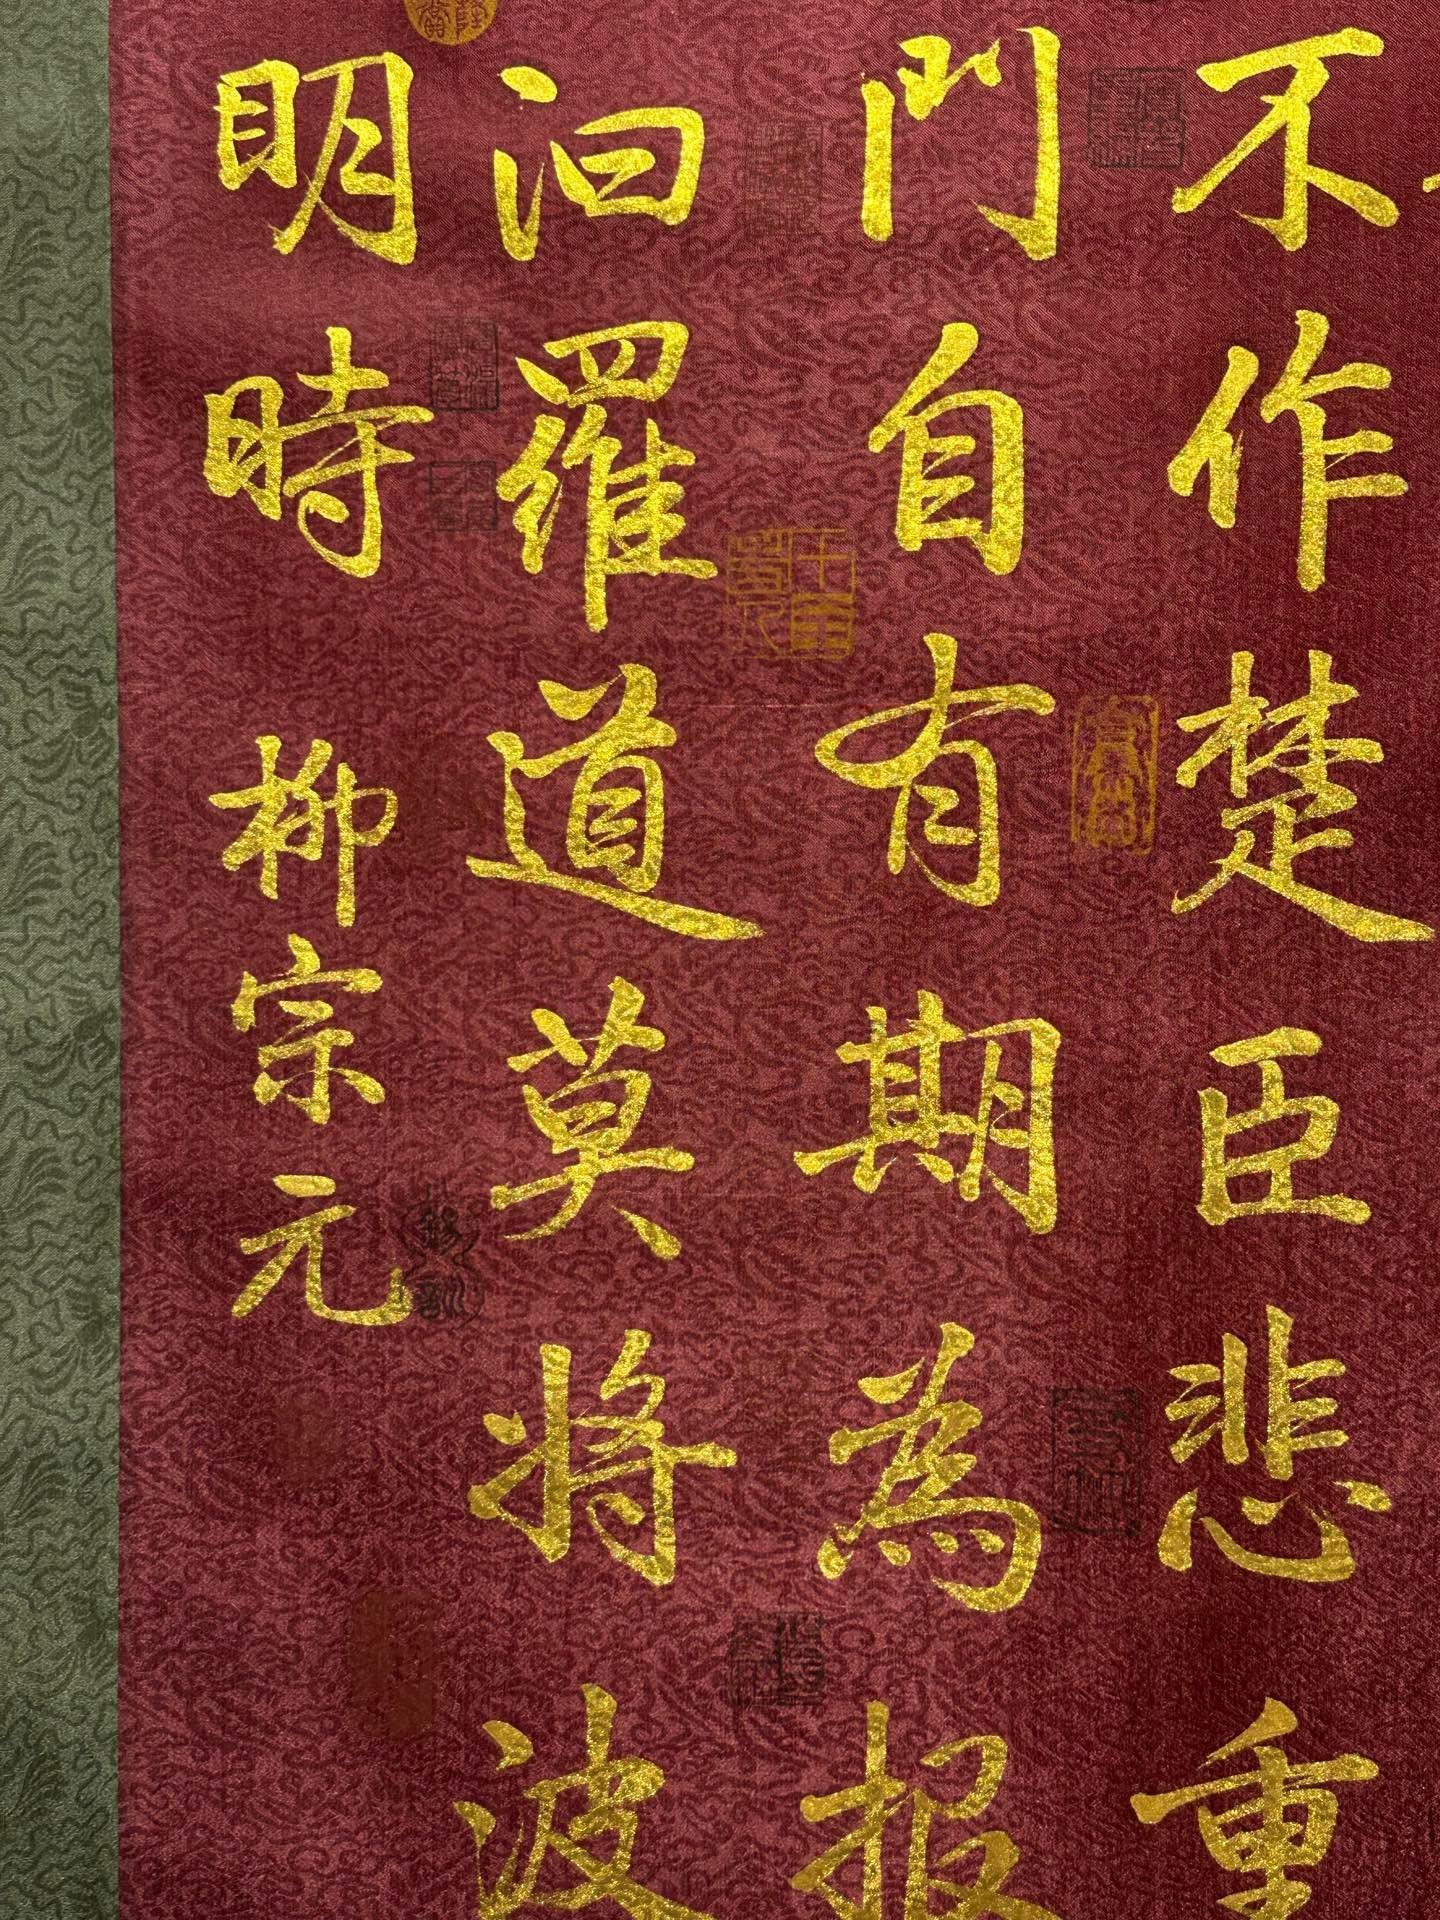 不作楚臣悲重
門自有期為報
汨羅道莫將波
明時 柳宗元